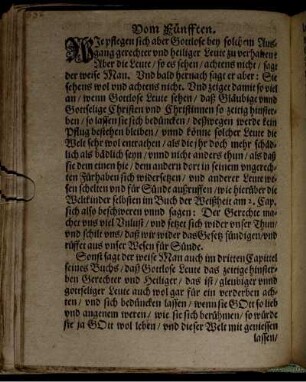 Vom Fünfften.
WJe pflegen sich aber Gottlose bey solchem Auß-
gang gerechter vnd heiliger Leute zu verhalten?
Aber die Leute / so es sehen / achtens nicht / sagt
der weise Man. Vnd bald hernach sagt er aber: Sie
sehens wol vnd achtens nicht. Vnd zeiget damit so viel
an / wenn Gottlose Leute sehen / daß Gläubige vnnd
Gottselige Christen vnd Christinnen so zeitig hinster-
ben / so lassen sie sich bedüncken / deßwegen werde kein
Pflug bestehen bleiben / vnnd könne solcher Leute die
Welt sehr wol entrathen / als die jhr doch mehr schäd-
lich als bädlich seyn / vnnd nicht anders thun / als daß
sie dem einen hie / dem andern dort in seinem vngerech-
ten Fürhaben sich widersetzen / vnd anderer Leute we-
sen schelten vnd für Sünde außruffen / wie hierüber die
Weltkinder selbsten im Buch der Weißheit am 2. Cap.
sich also beschweren vnnd sagen: Der Gerechte ma-
chet vns viel Vnlust / vnd setzet sich wider vnser Thun /
vnd schilt vns / daß wir wider das Gesetz sündigen / vnd
rüffet aus vnser Wesen für Sünde.
Sonst sagt der weise Man auch im dritten Capittel
seines Buchs / daß Gottlose Leute das zeitige hinster-
ben Gerechter vnd Heiliger / das ist / gleubiger vnnd
gottseliger Leute auch wol gar für ein verderben ach-
ten / vnd sich bedüncken lassen / wenn sie GOtt so lieb
vnd angenem weren / wie sie sich berühmen / so würde
sie ja GOtt wol leben / vnd dieser Welt mit geniessen
lassen /